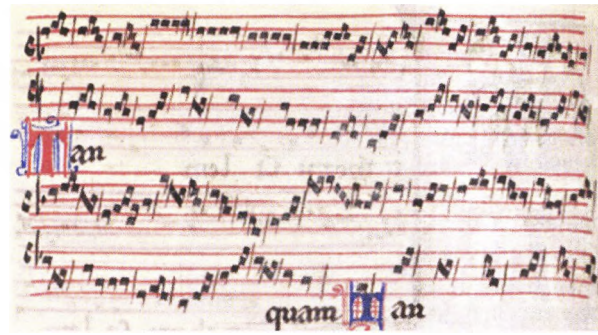 Tan
quam Tan